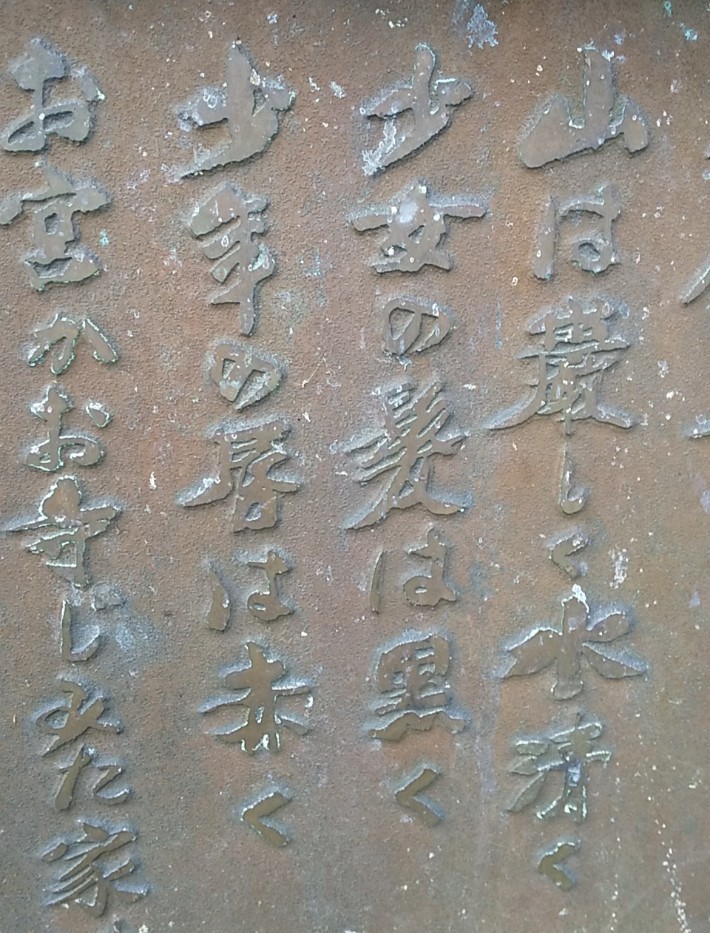 山は巌しく水清く
少女の髪は黒く
少年の唇は赤く
お宮かお寺じみた家